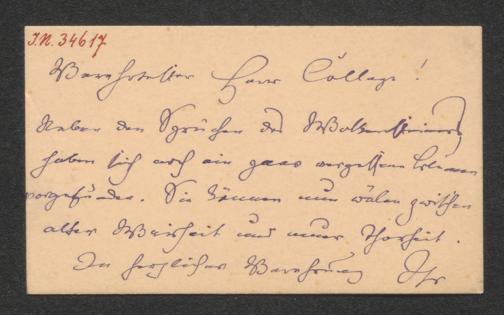 I.N. 34617
Verehrtester Herr College!
Neben den Sprüchen des Wolkensteiners
haben sich noch ein paar vergessene Blumen
vorgefunden. Sie können nun wälen zwischen
alter Weisheit und neuer Thorheit.
In herzlicher Verehrung Ihr